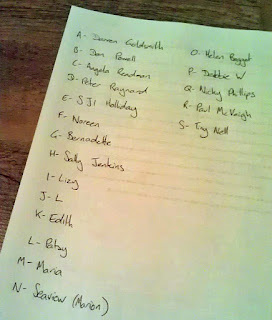 A- Darren Goldsmith
B- Dan Powell
C- Angela Readman
D- Peter Raynard
E- SJI Holliday
F- Noreen
G- Bernadette
H- Sally Jenkins
I- Lizy
J- L
K- Edith
L- Patsy
M- Maria
N- Seaview (Marion)
O- Helen Baggot
P- Debbie W
Q- Nicky Phillips
R- Paul McVeigh
S- Nell